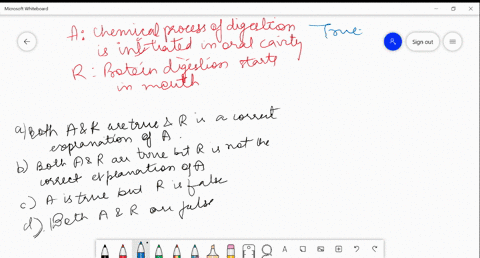 Microsoft Whiteboard
Sign out
A: Chemical process of digestion True.
is initiated in oral cavity
R: Protein digestion starts
in mouth
a) Both A & R are true & R is a correct
explanation of A.
b) Both A & R are true but R is not the
correct explanation of A
c) A is true but R is false
d) Both A & R are false